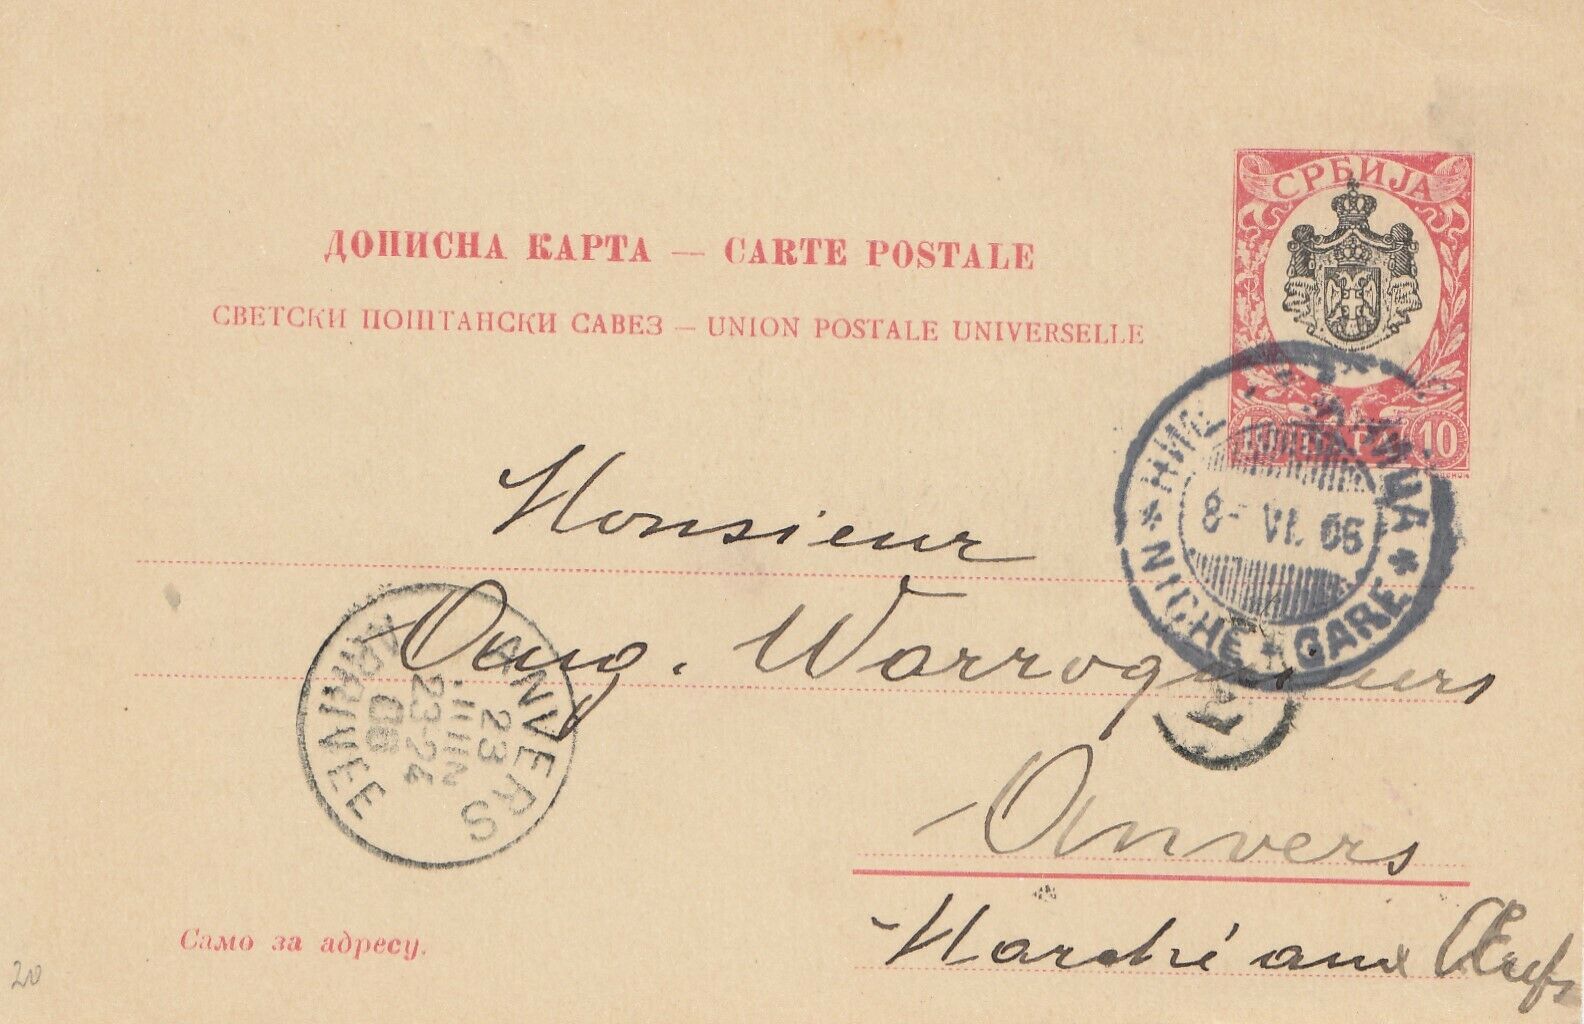 СРБИЈА
ДОПИСНА КАРТА — CARTE POSTALE
СВЕТСКИ ПОШТАНСКИ САВЕЗ — UNION POSTALE UNIVERSELLE
10 ПАРА 10
8- VI. 06
* NICHE * GARE *
Monsieur
Aug. Warroquiers
ANVERS
23
JUIN
23-24
ARRIVEE
Anvers
Marché aux Œufs
Само за адресу.
20